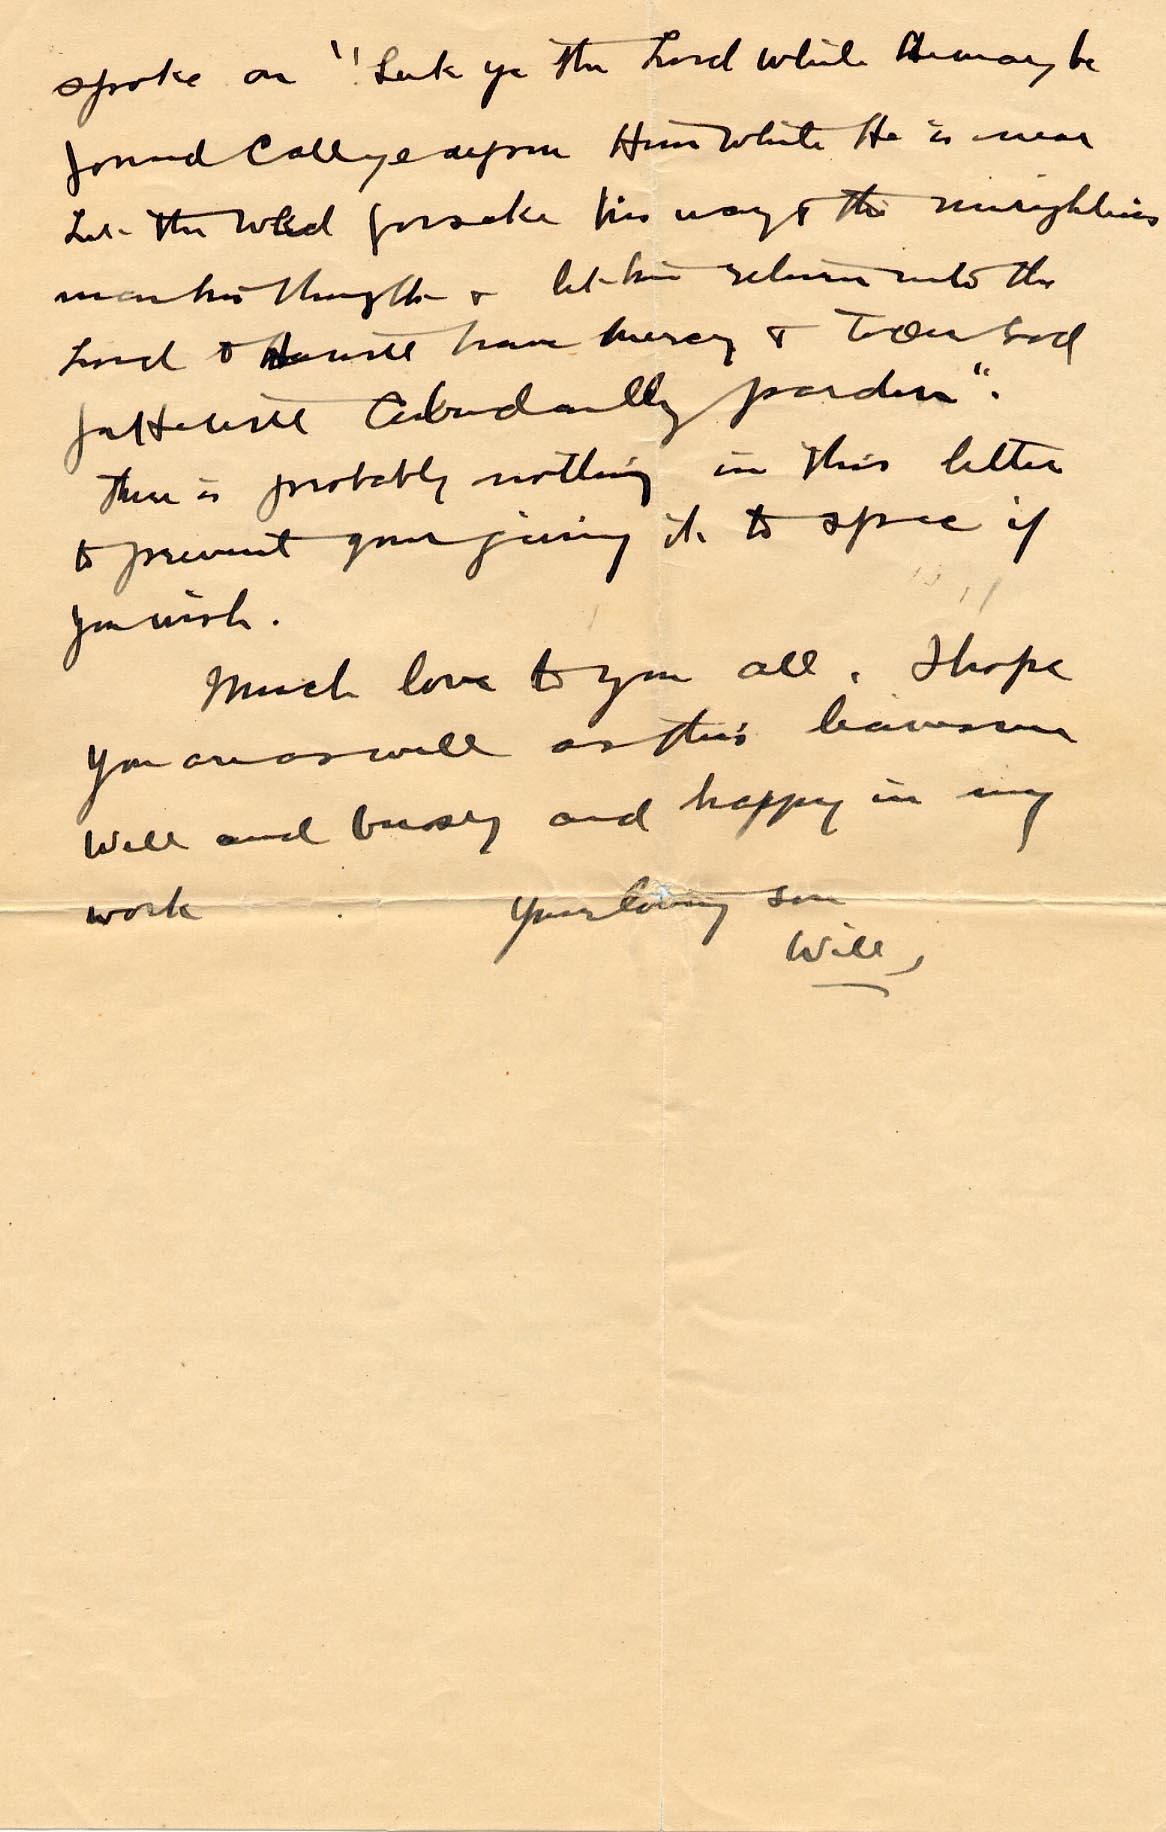 spoke on "Seek ye the Lord while He may be
found Call ye upon Him while He is near
Let the Wked forsake his way & the unrighteous
man his thoughts & let him return unto the
Lord & He will have mercy & to Our God
for He will abundantly pardon".
There is probably nothing in this letter
to prevent your giving it to if
you wish.
Much love to you all. I hope
you are as well as this leaves me
Well and busy and happy in my
work Your loving son
Will